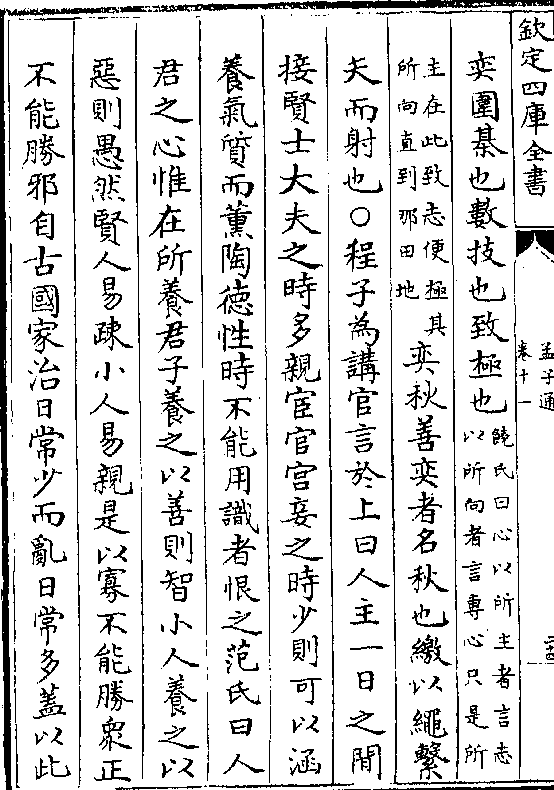 欽定四庫全書
孟子通
卷十一
奕圍棊也數技也致極也饒氏曰心以所主者言志
以所向者言專心只是所
主在此致志便極其
所向直到那田地
奕秋善奕者名秋也繳以繩繫
夫而射也○程子為講官言於上曰人主一日之間
接賢士大夫之時多親宦官宫妾之時少則可以涵
養氣質而薰陶徳性時不能用識者恨之范氏曰人
君之心惟在所養君子養之以善則智小人養之以
惡則愚然賢人易疎小人易親是以寡不能勝衆正
不能勝邪自古國家治日常少而亂日常多蓋以此